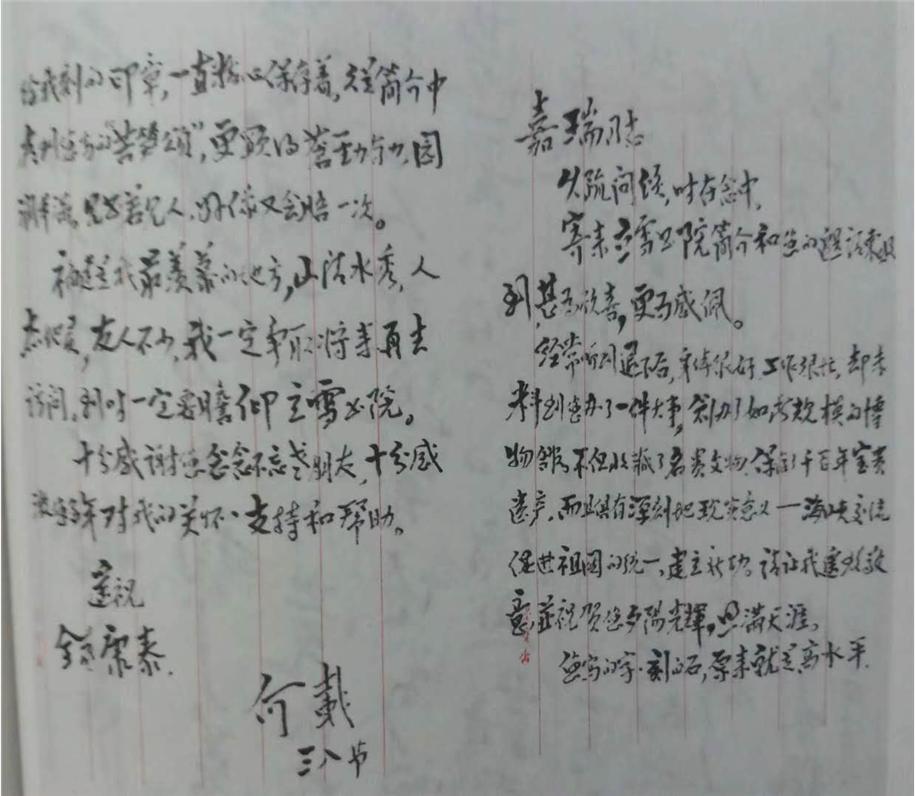 嘉瑞同志
久疏问候,时在念中,
寄来立雪书院简介和您的退话家收
到,甚为欣喜,更为感佩。
经常听到退下后,身体很好,工作很忙,却未
料到您办了一件大事,创办了如此规模的博
物馆,不但收藏了各类文物,保存了千百年宝贵
遗产,而且具有深刻地现实意义——海峡交流
促进祖国的统一,建立新功。请让我遥致敬
意,并祝贺您夕阳光辉,照满天涯。
您写的字、刻的石,原来就是高水平,
给我刻的印章,一直精心保存着,这简介中
,更显得苍劲有力,圆
见字若见人,好像又会晤一次。
福建是我最羡慕的地方,山清水秀,人
杰地灵,友人不少,我一定争取将来再去
访问,到时一定要瞻仰立雪书院。
十分感谢您念念不忘老朋友,十分感
激您多年对我的关怀、支持和帮助。
遥祝
全家康泰。
何载
三八节